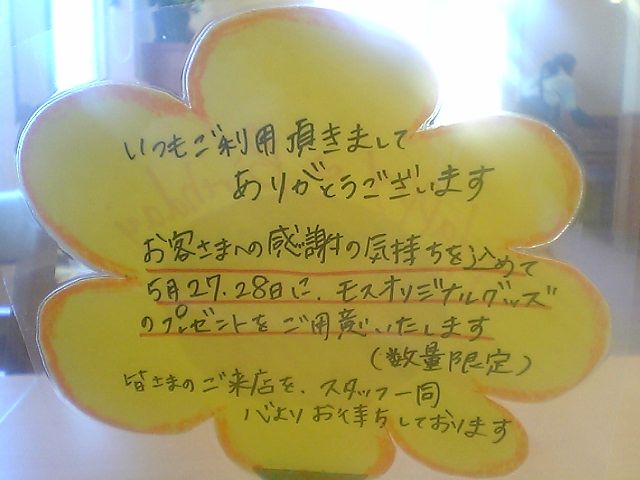 いつもご利用頂きまして
ありがとうございます
お客さまへの感謝の気持ちを込めて
5月27.28日に、モスオリジナルグッズ
のプレゼントをご用意いたします
(数量限定)
皆さまのご来店を、スタッフ一同
心よりお待ちしております